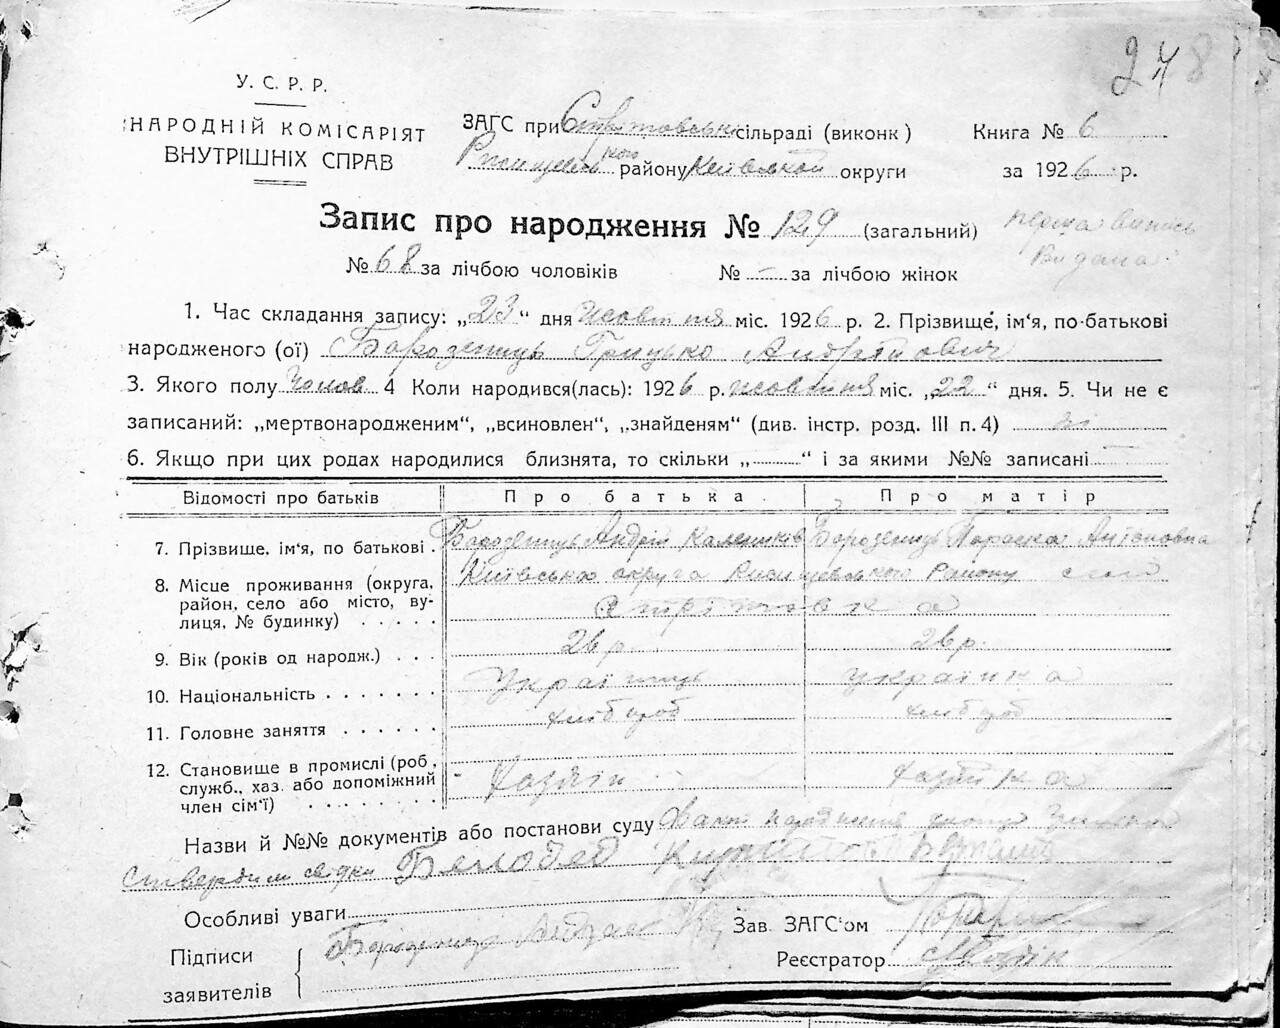 278
У. С. Р. Р.
НАРОДНІЙ КОМІСАРІЯТ
ВНУТРІШНІХ СПРАВ
ЗАГС при Стрітовській сільраді (виконк)
Ржищевського району Київської округи
Книга № 6
за 1926 р.
Запис про народження № 129 (загальний)
перша випись
видана
№ 68 за лічбою чоловіків № — за лічбою жінок
1. Час складання запису: „23“ дня жовтня міс. 1926 р. 2. Прізвище, ім'я, по-батькові
народженого (ої) Бороденць Грицько Андрійович
3. Якого полу чолов 4 Коли народився(лась): 1926 р. жовтня міс. „22“ дня. 5. Чи не є
записаний: „мертвонародженим“, „всиновлен“, „знайденям“ (див. інстр. розд. III п. 4) ні
6. Якщо при цих родах народилися близнята, то скільки „ “ і за якими №№ записані
Відомості про батьків Про батька. Про матір
7. Прізвище, ім'я, по батькові. Бороденць Андрій Бороденць Параска Антоновна
8. Місце проживання (округа, район, село або місто, вулиця, № будинку) Київська округа Ржищевського Району село
Стрітовка
9. Вік (років од народж.) 26 р. 26 р.
10. Національність Українць Українка
11. Головне заняття хлібороб хлібороб
12. Становище в промислі (роб, служб., хаз. або допоміжний член сім'ї) хазяін хазяйка
Назви й №№ документів або постанови суду Факт народження
ствердили свідки
Особливі уваги
Зав. ЗАГС'ом
Підписи
заявителів
Бороденць Андрій
Реєстратор